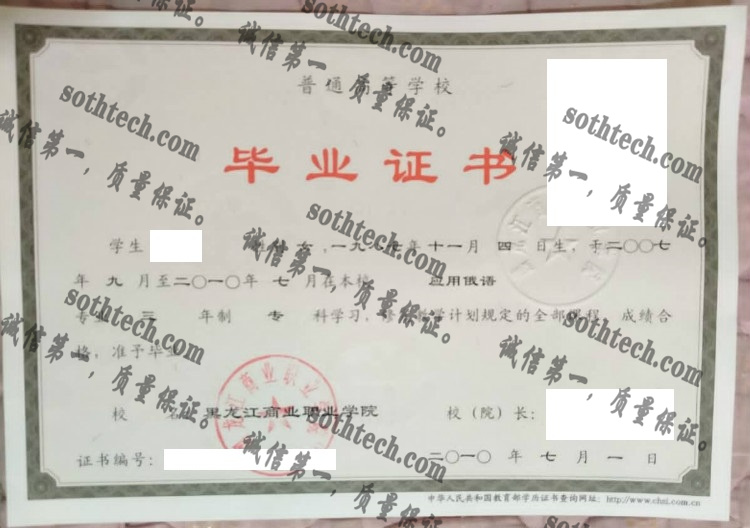 普通高等学校
毕业证书
学生 性别 女，一九八七年十一月 四 日生，于二〇〇七
年 九 月至二〇一〇年 七 月在本校 应用俄语
专业 三 年制 专 科学习，修完教学计划规定的全部课程，成绩合
格，准予毕业
校 名：黑龙江商业职业学院 校（院）长：
证书编号： 二〇一〇 年 七 月 一 日
中华人民共和国教育部学历证书查询网址：http://www.chsi.com.cn
黑龙江商业职业学院
sothtech.com
诚信第一，质量保证。
sothtech.com
诚信第一，质量保证。
sothtech.com
诚信第一，质量保证。
sothtech.com
诚信第一，质量保证。
sothtech.com
诚信第一，质量保证。
sothtech.com
诚信第一，质量保证。
sothtech.com
诚信第一，质量保证。
sothtech.com
诚信第一，质量保证。